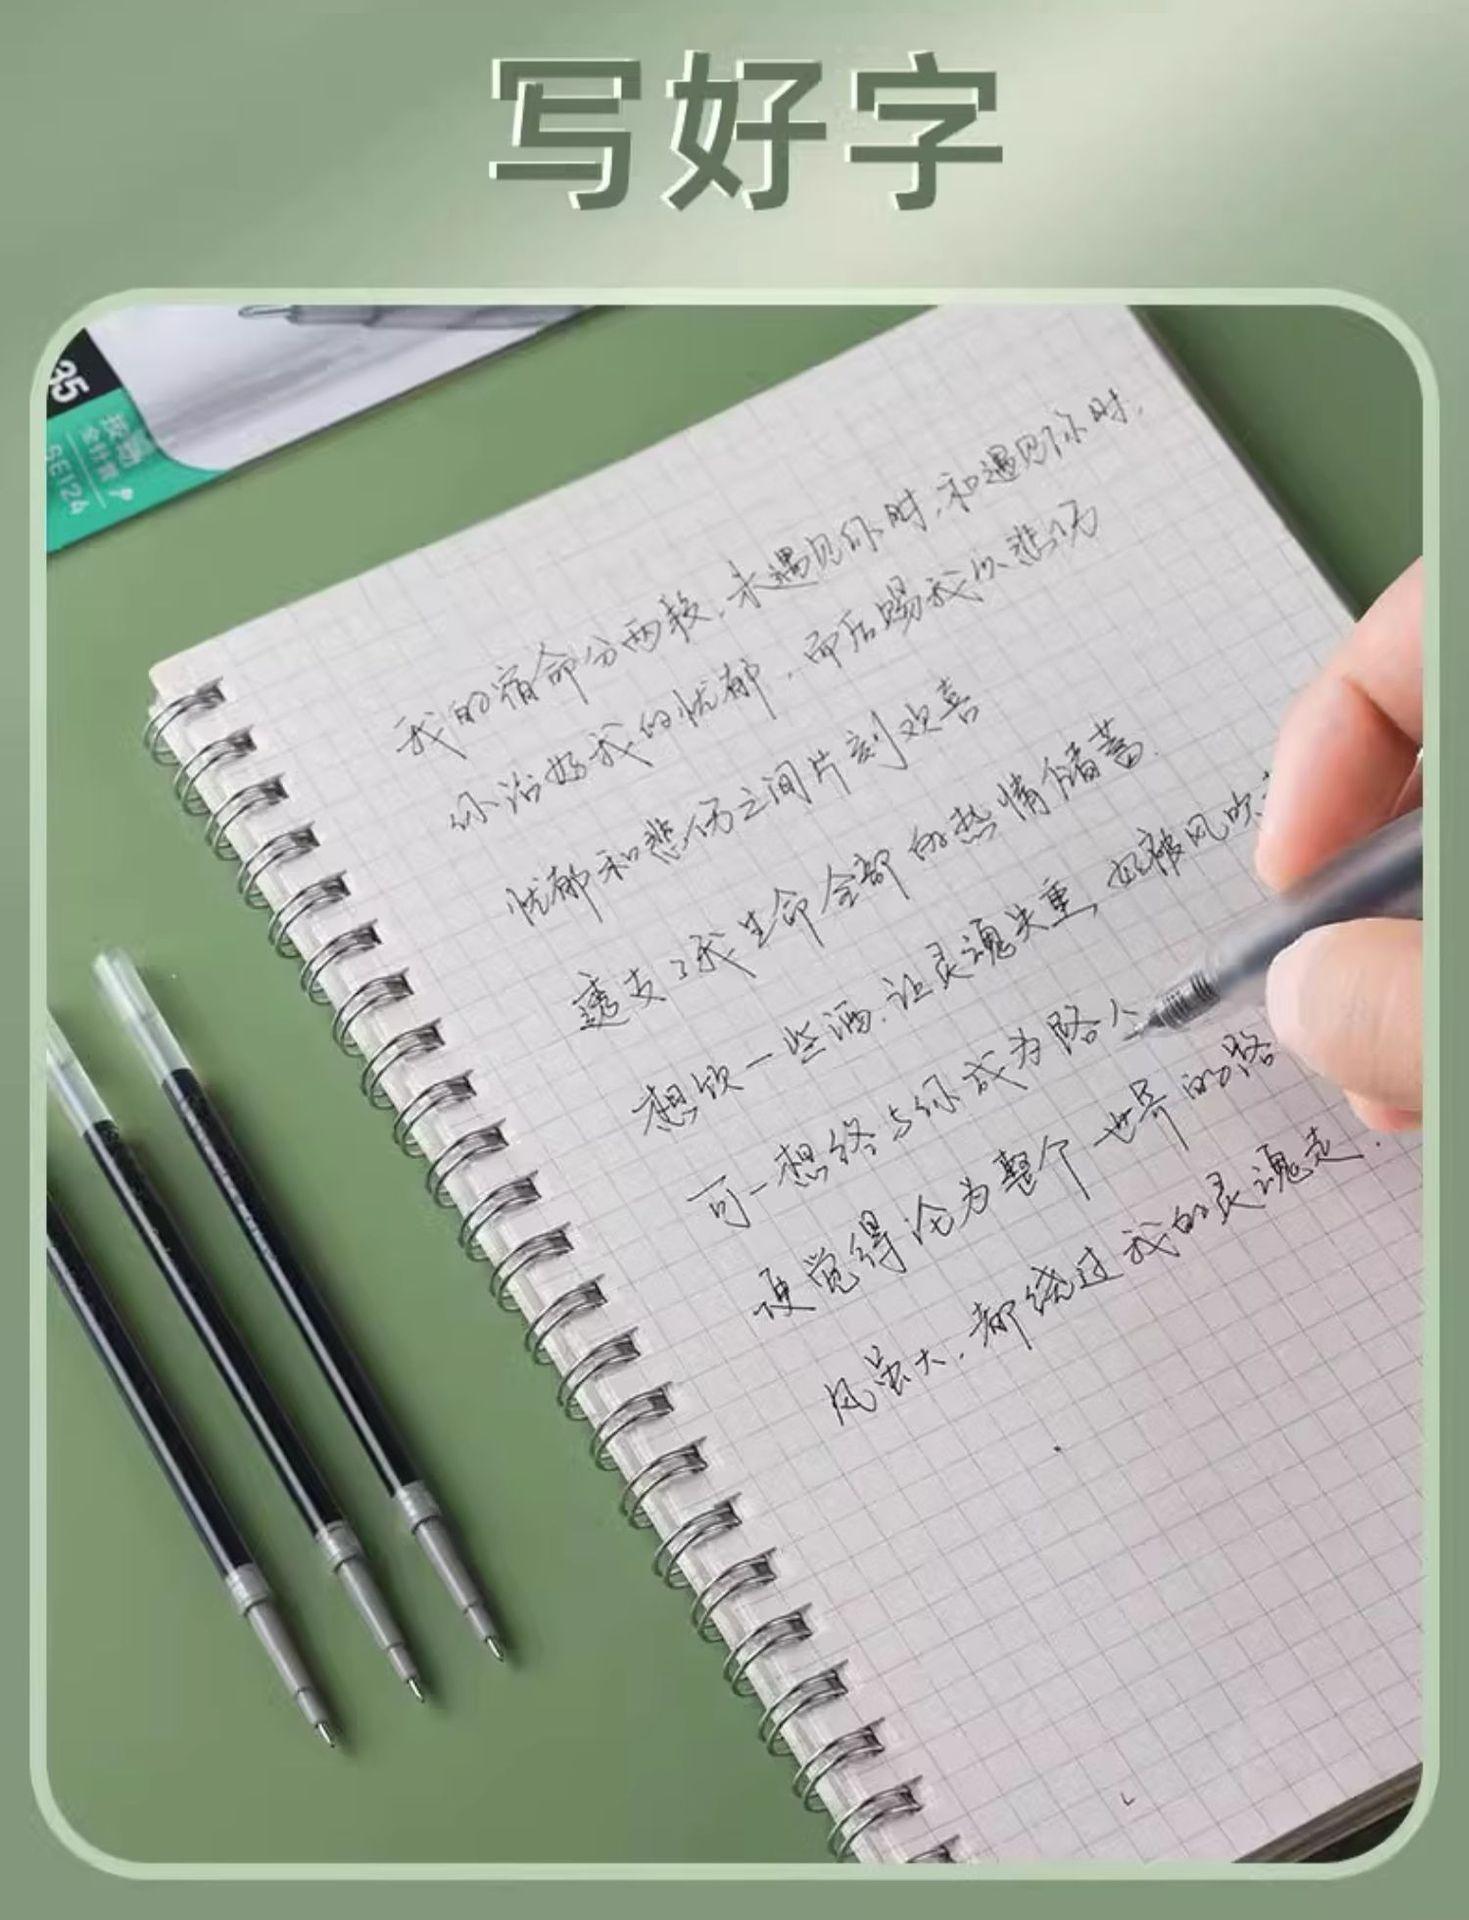 写好字
35
按动
全针管
SE124
我的宿命分两段,未遇见你时,和遇见你时,
你治好我的忧郁,而后赐我以悲伤
忧郁和悲伤之间片刻欢喜
透支了我生命全部的热情储蓄.
想饮一些酒,让灵魂失重,好被风吹
可一想终与你成为路人
便觉得沦为整个世界的路
风虽大,都绕过我的灵魂走.